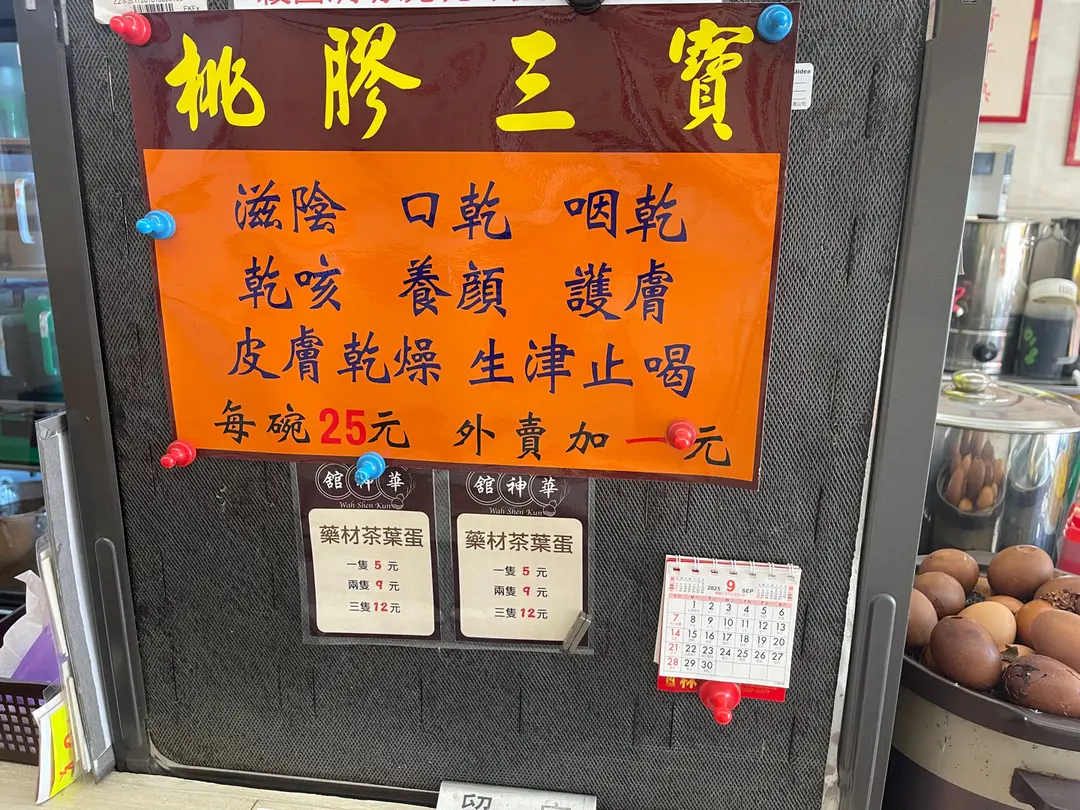 桃膠三寶
滋陰 口乾 咽乾
乾咳 養顏 護膚
皮膚乾燥 生津止喝
每碗25元 外賣加一元
舘神華
Wah Shen Kun
藥材茶葉蛋
一隻 5 元
兩隻 9 元
三隻 12 元
舘神華
Wah Shen Kun
藥材茶葉蛋
一隻 5 元
兩隻 9 元
三隻 12 元
2025 9 SEP
1 2 3 4 5 6
7 8 9 10 11 12 13
14 15 16 17 18 19 20
21 22 23 24 25 26 27
28 29 30